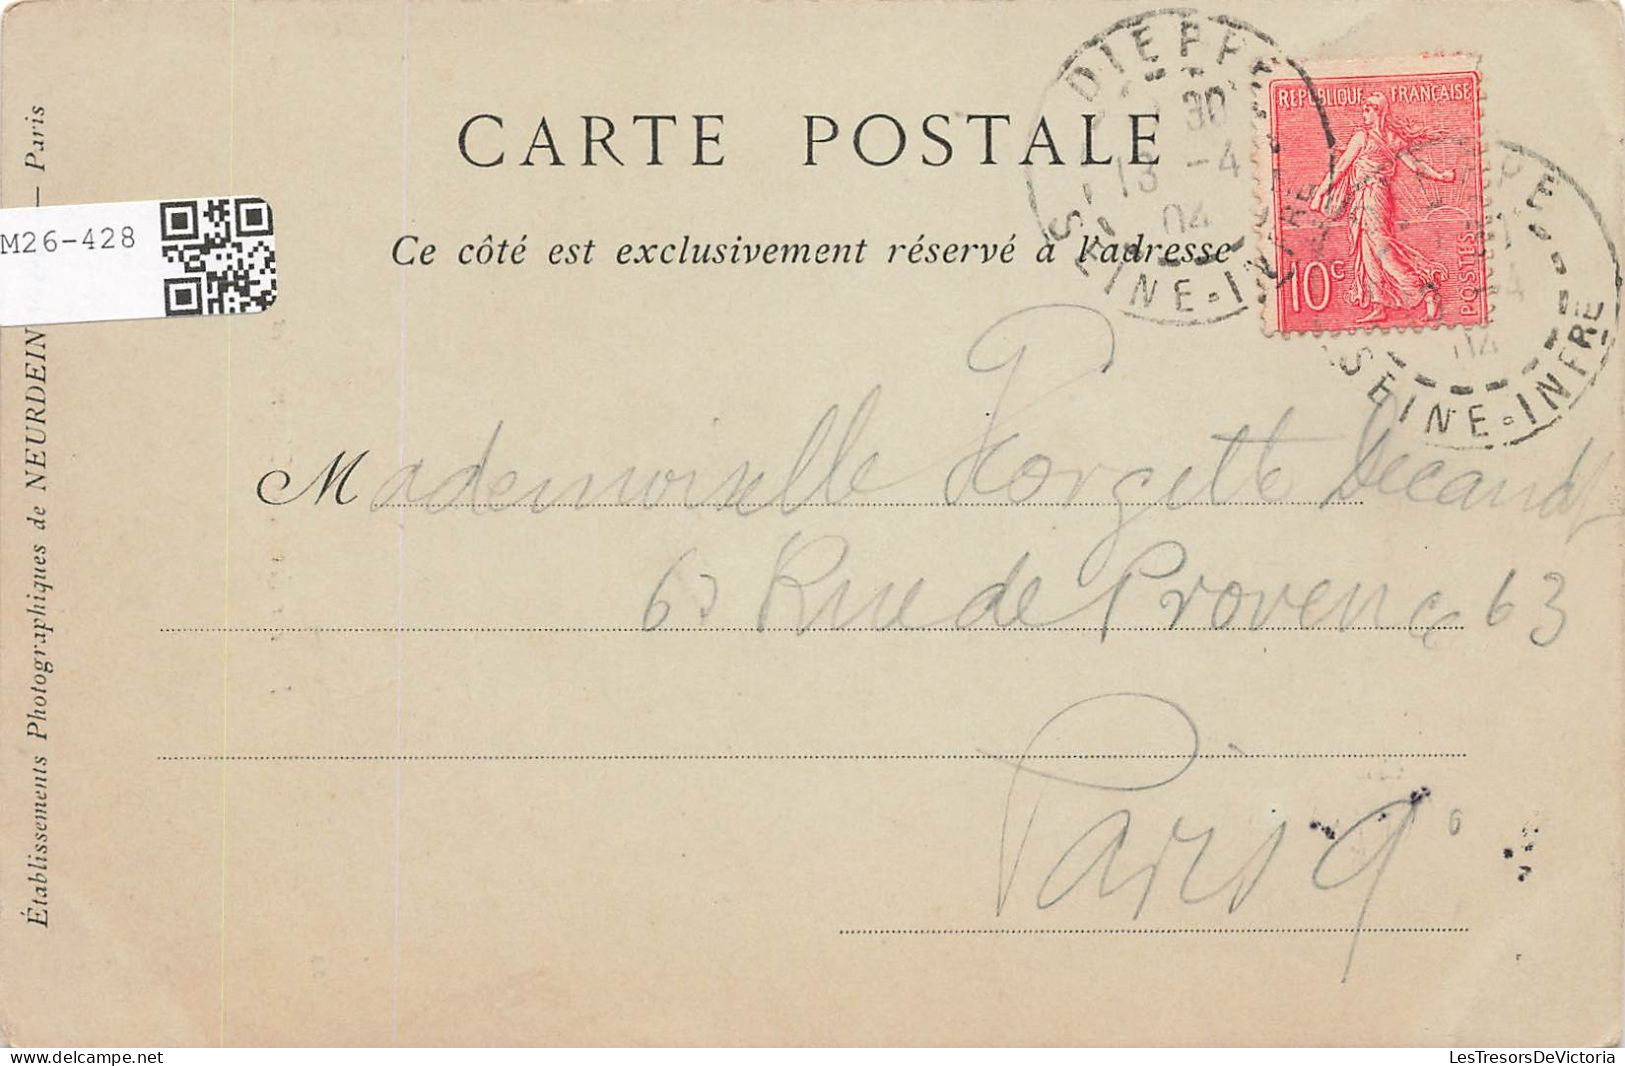 CARTE POSTALE
Ce côté est exclusivement réservé à l'adresse
Mademoiselle Gorgette
63 Rue de Provence 63
Paris 9
Établissements Photographiques de NEURDEIN — Paris
M26-428
DIEPPE
30
13 -4
04
SEINE-INFRE
REPUBLIQUE FRANÇAISE
10c
POSTES
SEINE-INFRE
04
LesTresorsDeVictoria